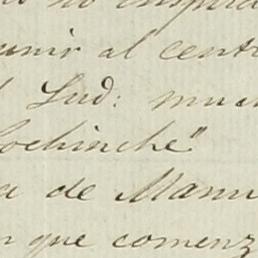 no inspira
unir al cent
Sud: mu
Cochinche"
a de Manu
que comenz